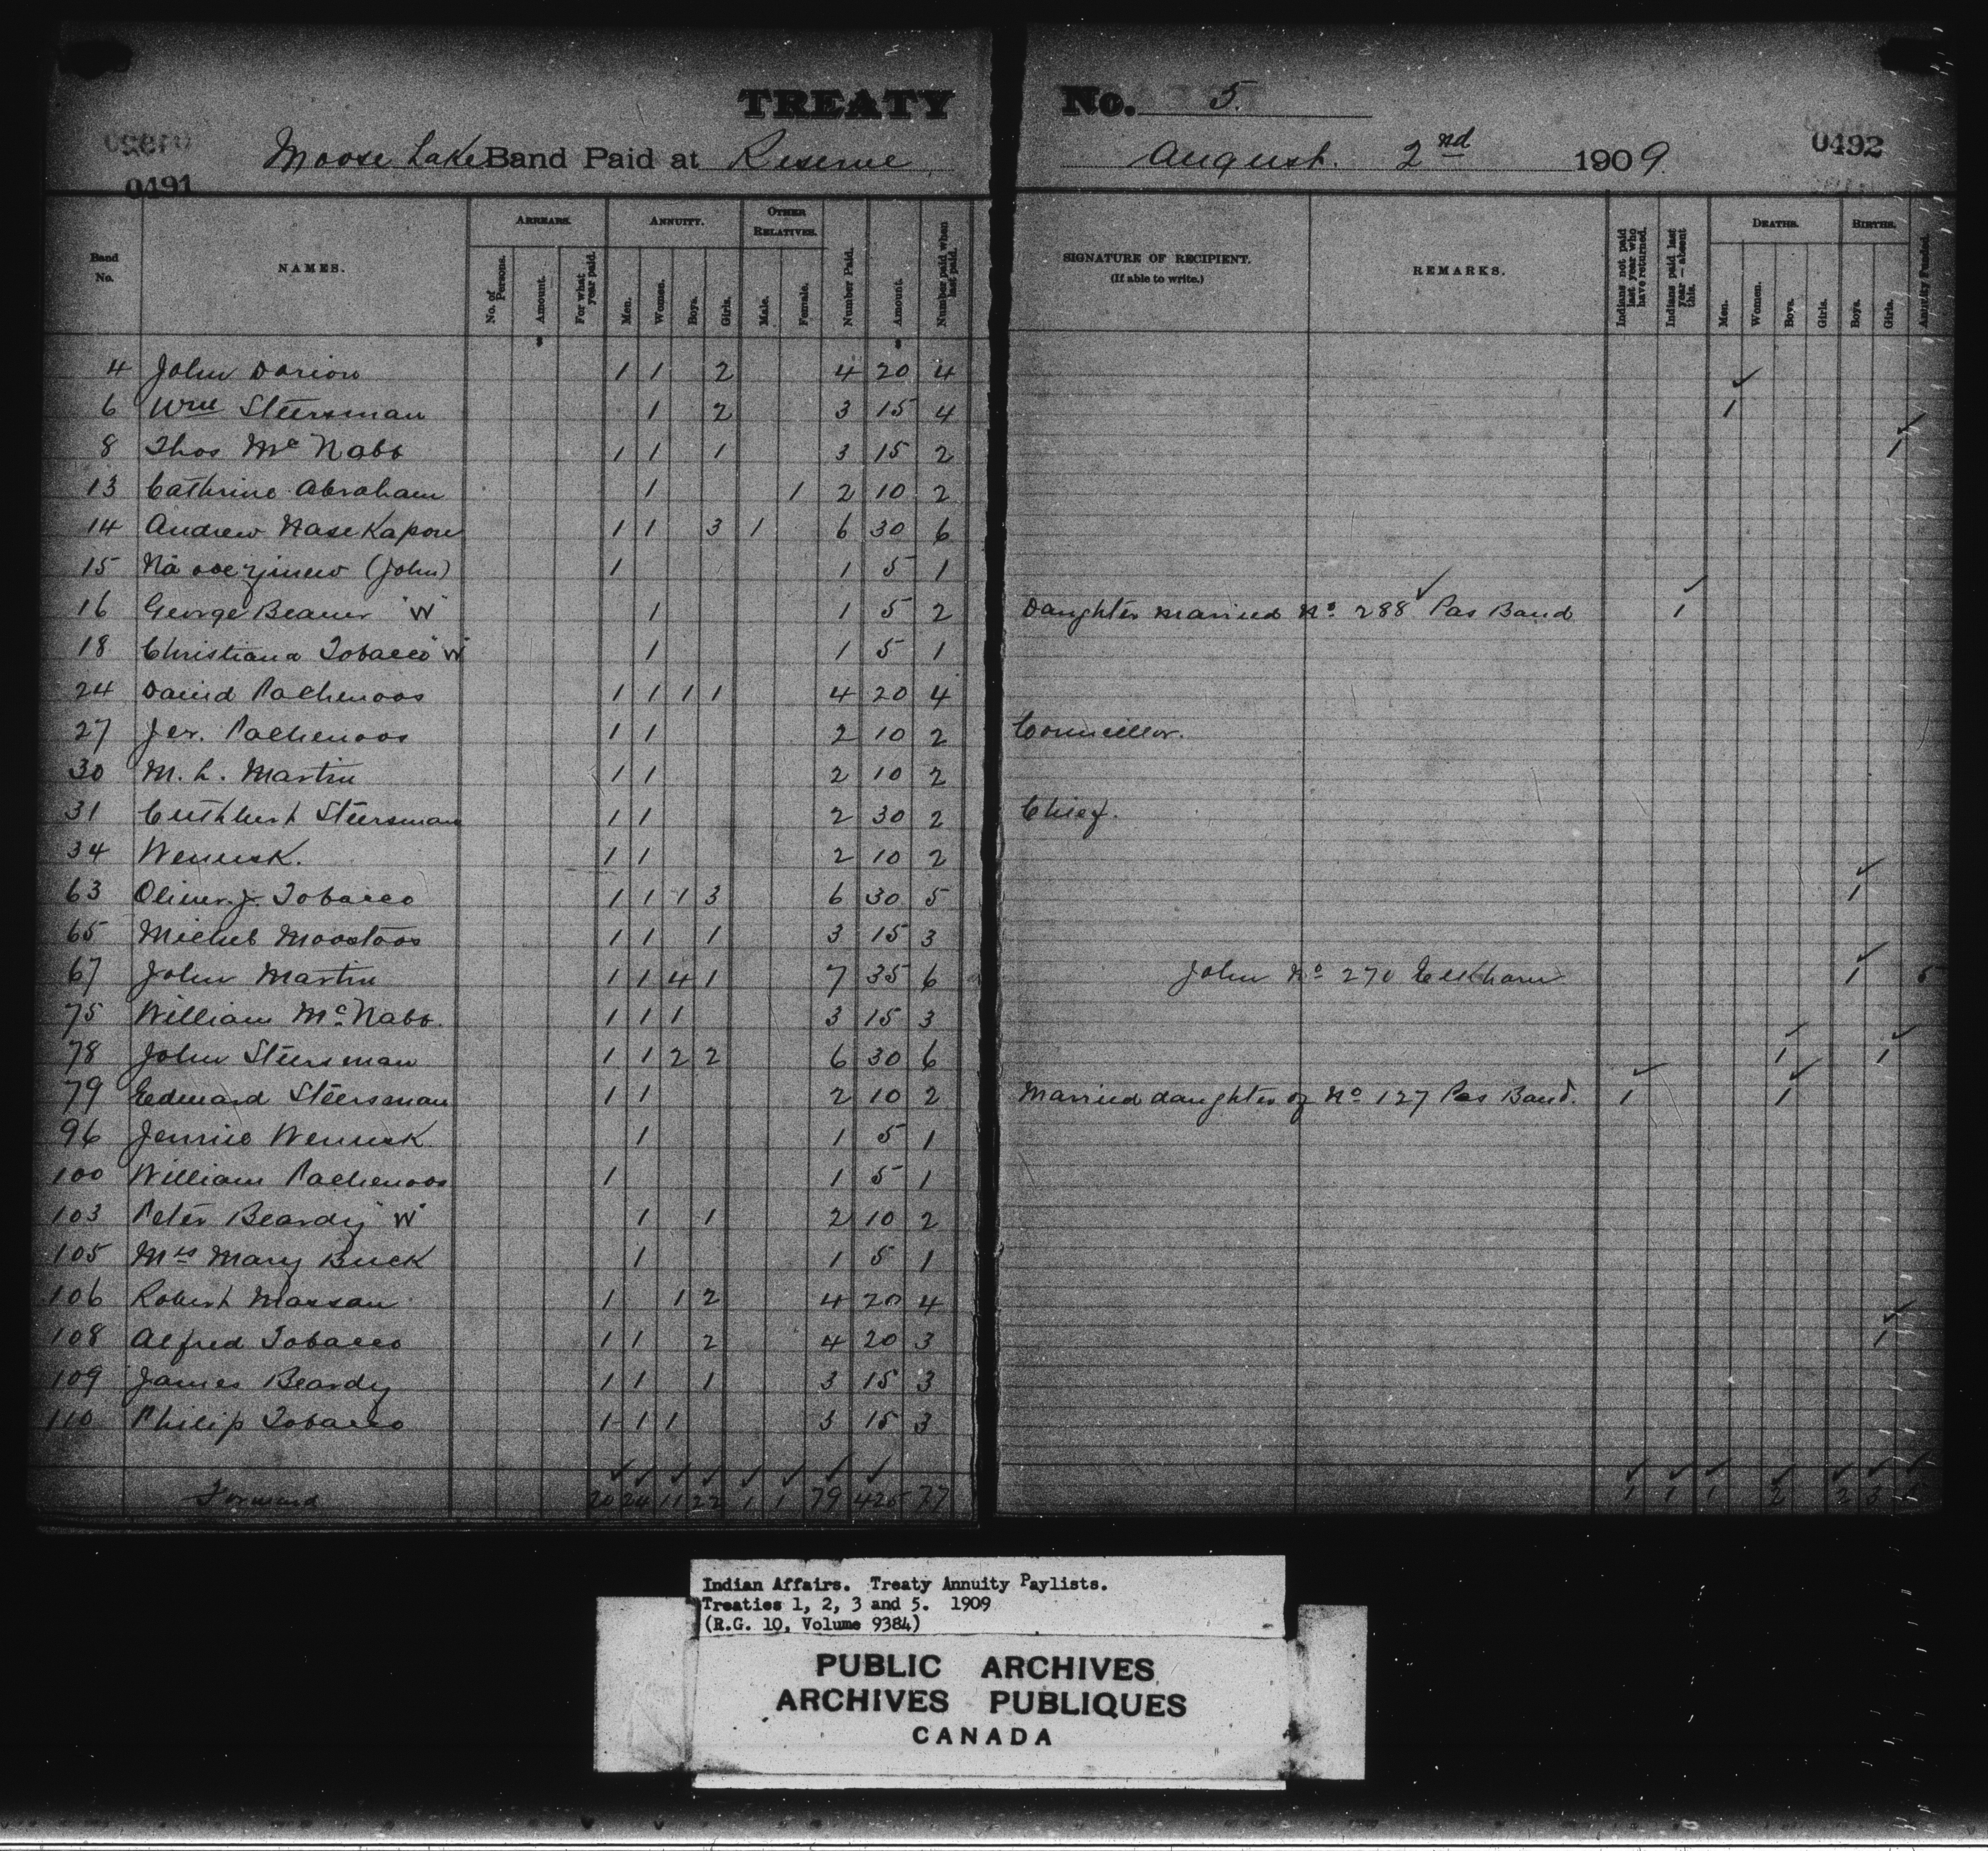 TREATY No. 5.
Moose Lake Band Paid at Reserve August 2nd 1909
0491 0492
Band No. NAMES. ARREARS. No. of Persons. Amount. For what year paid. ANNUITY. Men. Women. Boys. Girls. OTHER RELATIVES. Male. Female. Number Paid. Amount. Number paid when last paid. SIGNATURE OF RECIPIENT. (If able to write.) REMARKS. Indians not paid last year who have returned. Indians paid last year — absent this. DEATHS. Men. Women. Boys. Girls. BIRTHS. Boys. Girls. Annuity Funded.
4 John Dorion 1 1 2 4 20 4
6 Wm Steersman 1 2 3 15 4 1
8 Thos McNabb 1 1 1 3 15 2 1
13 Cathrine Abraham 1 1 2 10 2
14 Andrew Nasekapow 1 1 3 1 6 30 6
15 (John) 1 1 5 1
16 George Beaver "W" 1 1 5 2 Daughter married No 288 Pas Band 1
18 Christiana Tobacco "W" 1 1 5 1
24 David Pachenoos 1 1 1 1 4 20 4
27 Jer. Pachenoos 1 1 2 10 2 Councillor.
30 M. L. Martin 1 1 2 10 2
31 Cuthbert Steersman 1 1 2 30 2 Chief.
34 Wenusk. 1 1 2 10 2
63 Oliver J. Tobacco 1 1 1 3 6 30 5 1
65 Moostoos 1 1 1 3 15 3
67 John Martin 1 1 4 1 7 35 6 John No 270 1 5
75 William McNabb. 1 1 1 3 15 3
78 John Steersman 1 1 2 2 6 30 6 1 1
79 Edward Steersman 1 1 2 10 2 Married daughter of No 127 Pas Band. 1 1
96 Jennie Wenusk 1 1 5 1
100 William Pachenoos 1 1 5 1
103 Peter Beardy "W" 1 1 2 10 2
105 Mrs Mary Buck 1 1 5 1
106 Robert Massan 1 1 2 4 20 4
108 Alfred Tobacco 1 1 2 4 20 3 1
109 James Beardy 1 1 1 3 15 3
110 Philip Tobacco 1 1 1 3 15 3
Forward 20 24 11 22 1 1 79 425 77 1 1 1 2 2 3
Indian Affairs. Treaty Annuity Paylists.
Treaties 1, 2, 3 and 5. 1909
(R.G. 10, Volume 9384)
PUBLIC ARCHIVES
ARCHIVES PUBLIQUES
CANADA